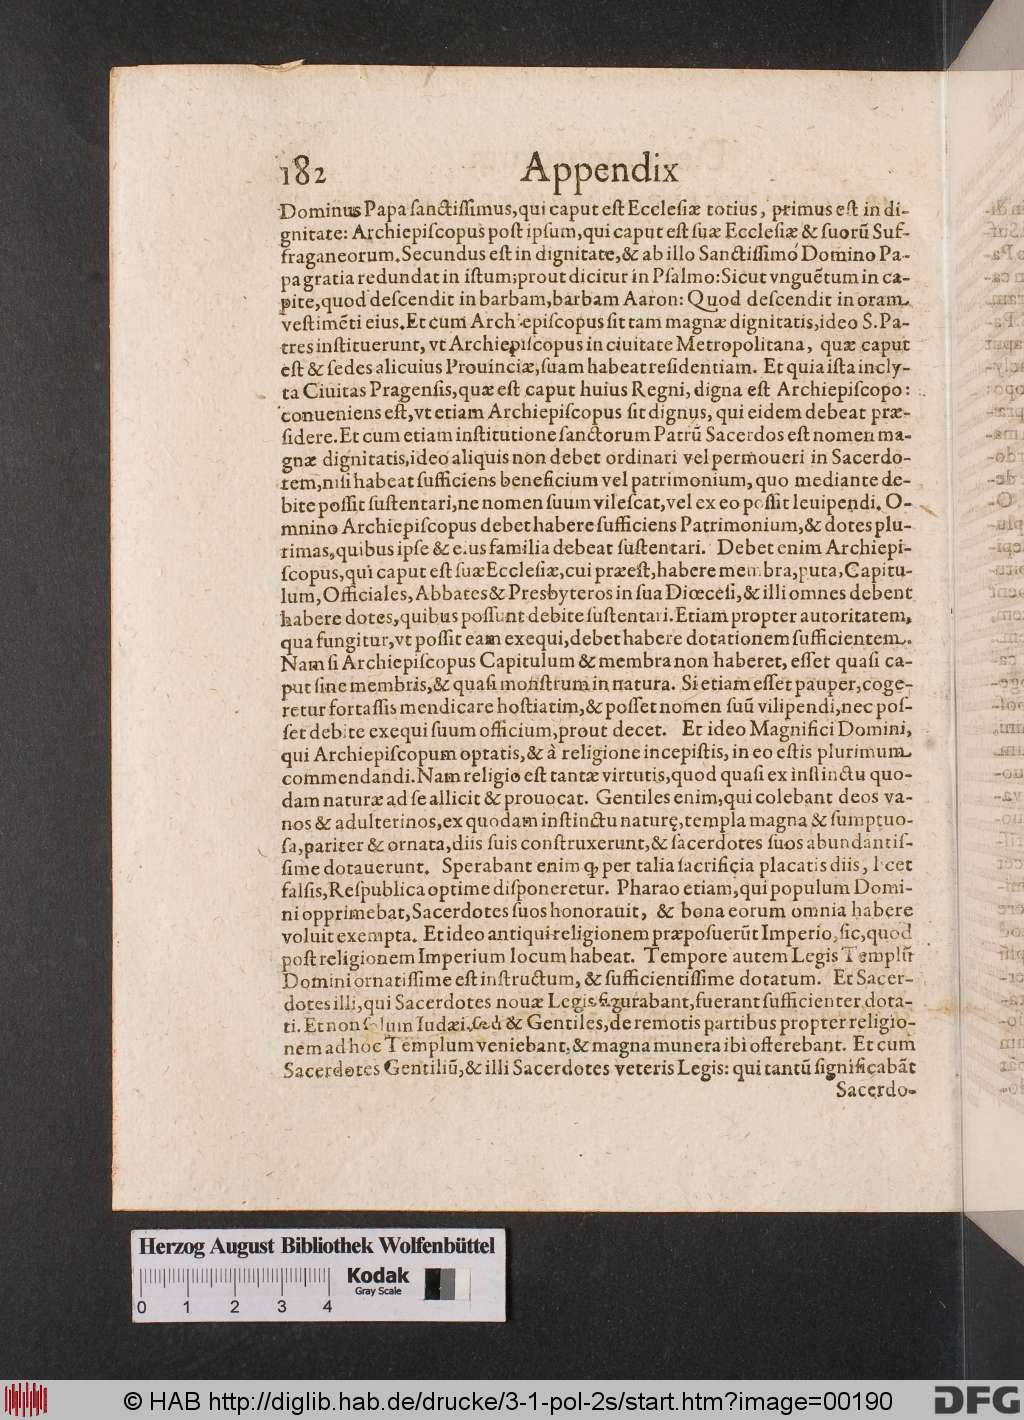 182 Appendix
Dominus Papa ſanctiſſimus, qui caput eſt Eccleſiæ totius, primus eſt in di-
gnitate: Archiepiſcopus poſt ipſum, qui caput eſt ſuæ Eccleſiæ & ſuorū Suf-
fraganeorum. Secundus eſt in dignitate, & ab illo Sanctiſſimo Domino Pa-
pa gratia redundat in iſtum; prout dicitur in Pſalmo: Sicut vnguētum in ca-
pite, quod deſcendit in barbam, barbam Aaron: Quod deſcendit in oram
veſtimēti eius. Et cum Archiepiſcopus ſit tam magnæ dignitatis, ideo S. Pa-
tres inſtituerunt, vt Archiepiſcopus in ciuitate Metropolitana, quæ caput
eſt & ſedes alicuius Prouinciæ, ſuam habeat reſidentiam. Et quia iſta incly-
ta Ciuitas Pragenſis, quæ eſt caput huius Regni, digna eſt Archiepiſcopo:
conueniens eſt, vt etiam Archiepiſcopus ſit dignus, qui eidem debeat præ-
ſidere. Et cum etiam inſtitutione ſanctorum Patrū Sacerdos eſt nomen ma-
gnæ dignitatis, ideo aliquis non debet ordinari vel permoueri in Sacerdo-
tem, niſi habeat ſufficiens beneficium vel patrimonium, quo mediante de-
bite poſſit ſuſtentari, ne nomen ſuum vileſcat, vel ex eo poſſit leuipendi. O-
mnino Archiepiſcopus debet habere ſufficiens Patrimonium, & dotes plu-
rimas, quibus ipſe & eius familia debeat ſuſtentari. Debet enim Archiepi-
ſcopus, qui caput eſt ſuæ Eccleſiæ, cui præeſt, habere membra, puta, Capitu-
lum, Officiales, Abbates & Presbyteros in ſua Diœceſi, & illi omnes debent
habere dotes, quibus poſſunt debite ſuſtentari. Etiam propter autoritatem,
qua fungitur, vt poſſit eam exequi, debet habere dotationem ſufficientem.
Nam ſi Archiepiſcopus Capitulum & membra non haberet, eſſet quaſi ca-
put ſine membris, & quaſi monſtrum in natura. Si etiam eſſet pauper, coge-
retur fortaſſis mendicare hoſtiatim, & poſſet nomen ſuū vilipendi, nec poſ-
ſet debite exequi ſuum officium, prout decet. Et ideo Magnifici Domini,
qui Archiepiſcopum optatis, & à religione incepiſtis, in eo eſtis plurimum
commendandi. Nam religio eſt tantæ virtutis, quod quaſi ex inſtinctu quo-
dam naturæ ad ſe allicit & prouocat. Gentiles enim, qui colebant deos va-
nos & adulterinos, ex quodam inſtinctu naturę, templa magna & ſumptuo-
ſa, pariter & ornata, diis ſuis conſtruxerunt, & ſacerdotes ſuos abundantiſ-
ſime dotauerunt. Sperabant enim ꝙ per talia ſacrificia placatis diis, licet
falſis, Reſpublica optime diſponeretur. Pharao etiam, qui populum Domi-
ni opprimebat, Sacerdotes ſuos honorauit, & bona eorum omnia habere
voluit exempta. Et ideo antiqui religionem præpoſuerūt Imperio, ſic, quod
poſt religionem Imperium locum habeat. Tempore autem Legis Templū
Domini ornatiſſime eſt inſtructum, & ſufficientiſſime dotatum. Et Sacer-
dotes illi, qui Sacerdotes nouæ Legis figurabant, fuerant ſufficienter dota-
ti. Et non ſolum Iudæi, ſed & Gentiles, de remotis partibus propter religio-
nem ad hoc Templum veniebant, & magna munera ibi offerebant. Et cum
Sacerdotes Gentiliū, & illi Sacerdotes veteris Legis: qui tantū ſignificabāt
Sacerdo-
Herzog August Bibliothek Wolfenbüttel
Kodak
Gray Scale
0 1 2 3 4
© HAB http://diglib.hab.de/drucke/3-1-pol-2s/start.htm?image=00190
DFG